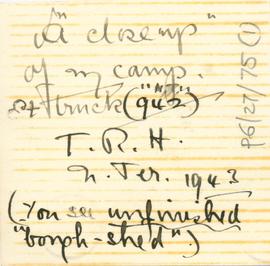 "A close up"
of my camp.
& truck ("942")
T. R. H.
N. Ter. 1943
(You see unfinished
"bough-shed".)
P6/27/75 ①